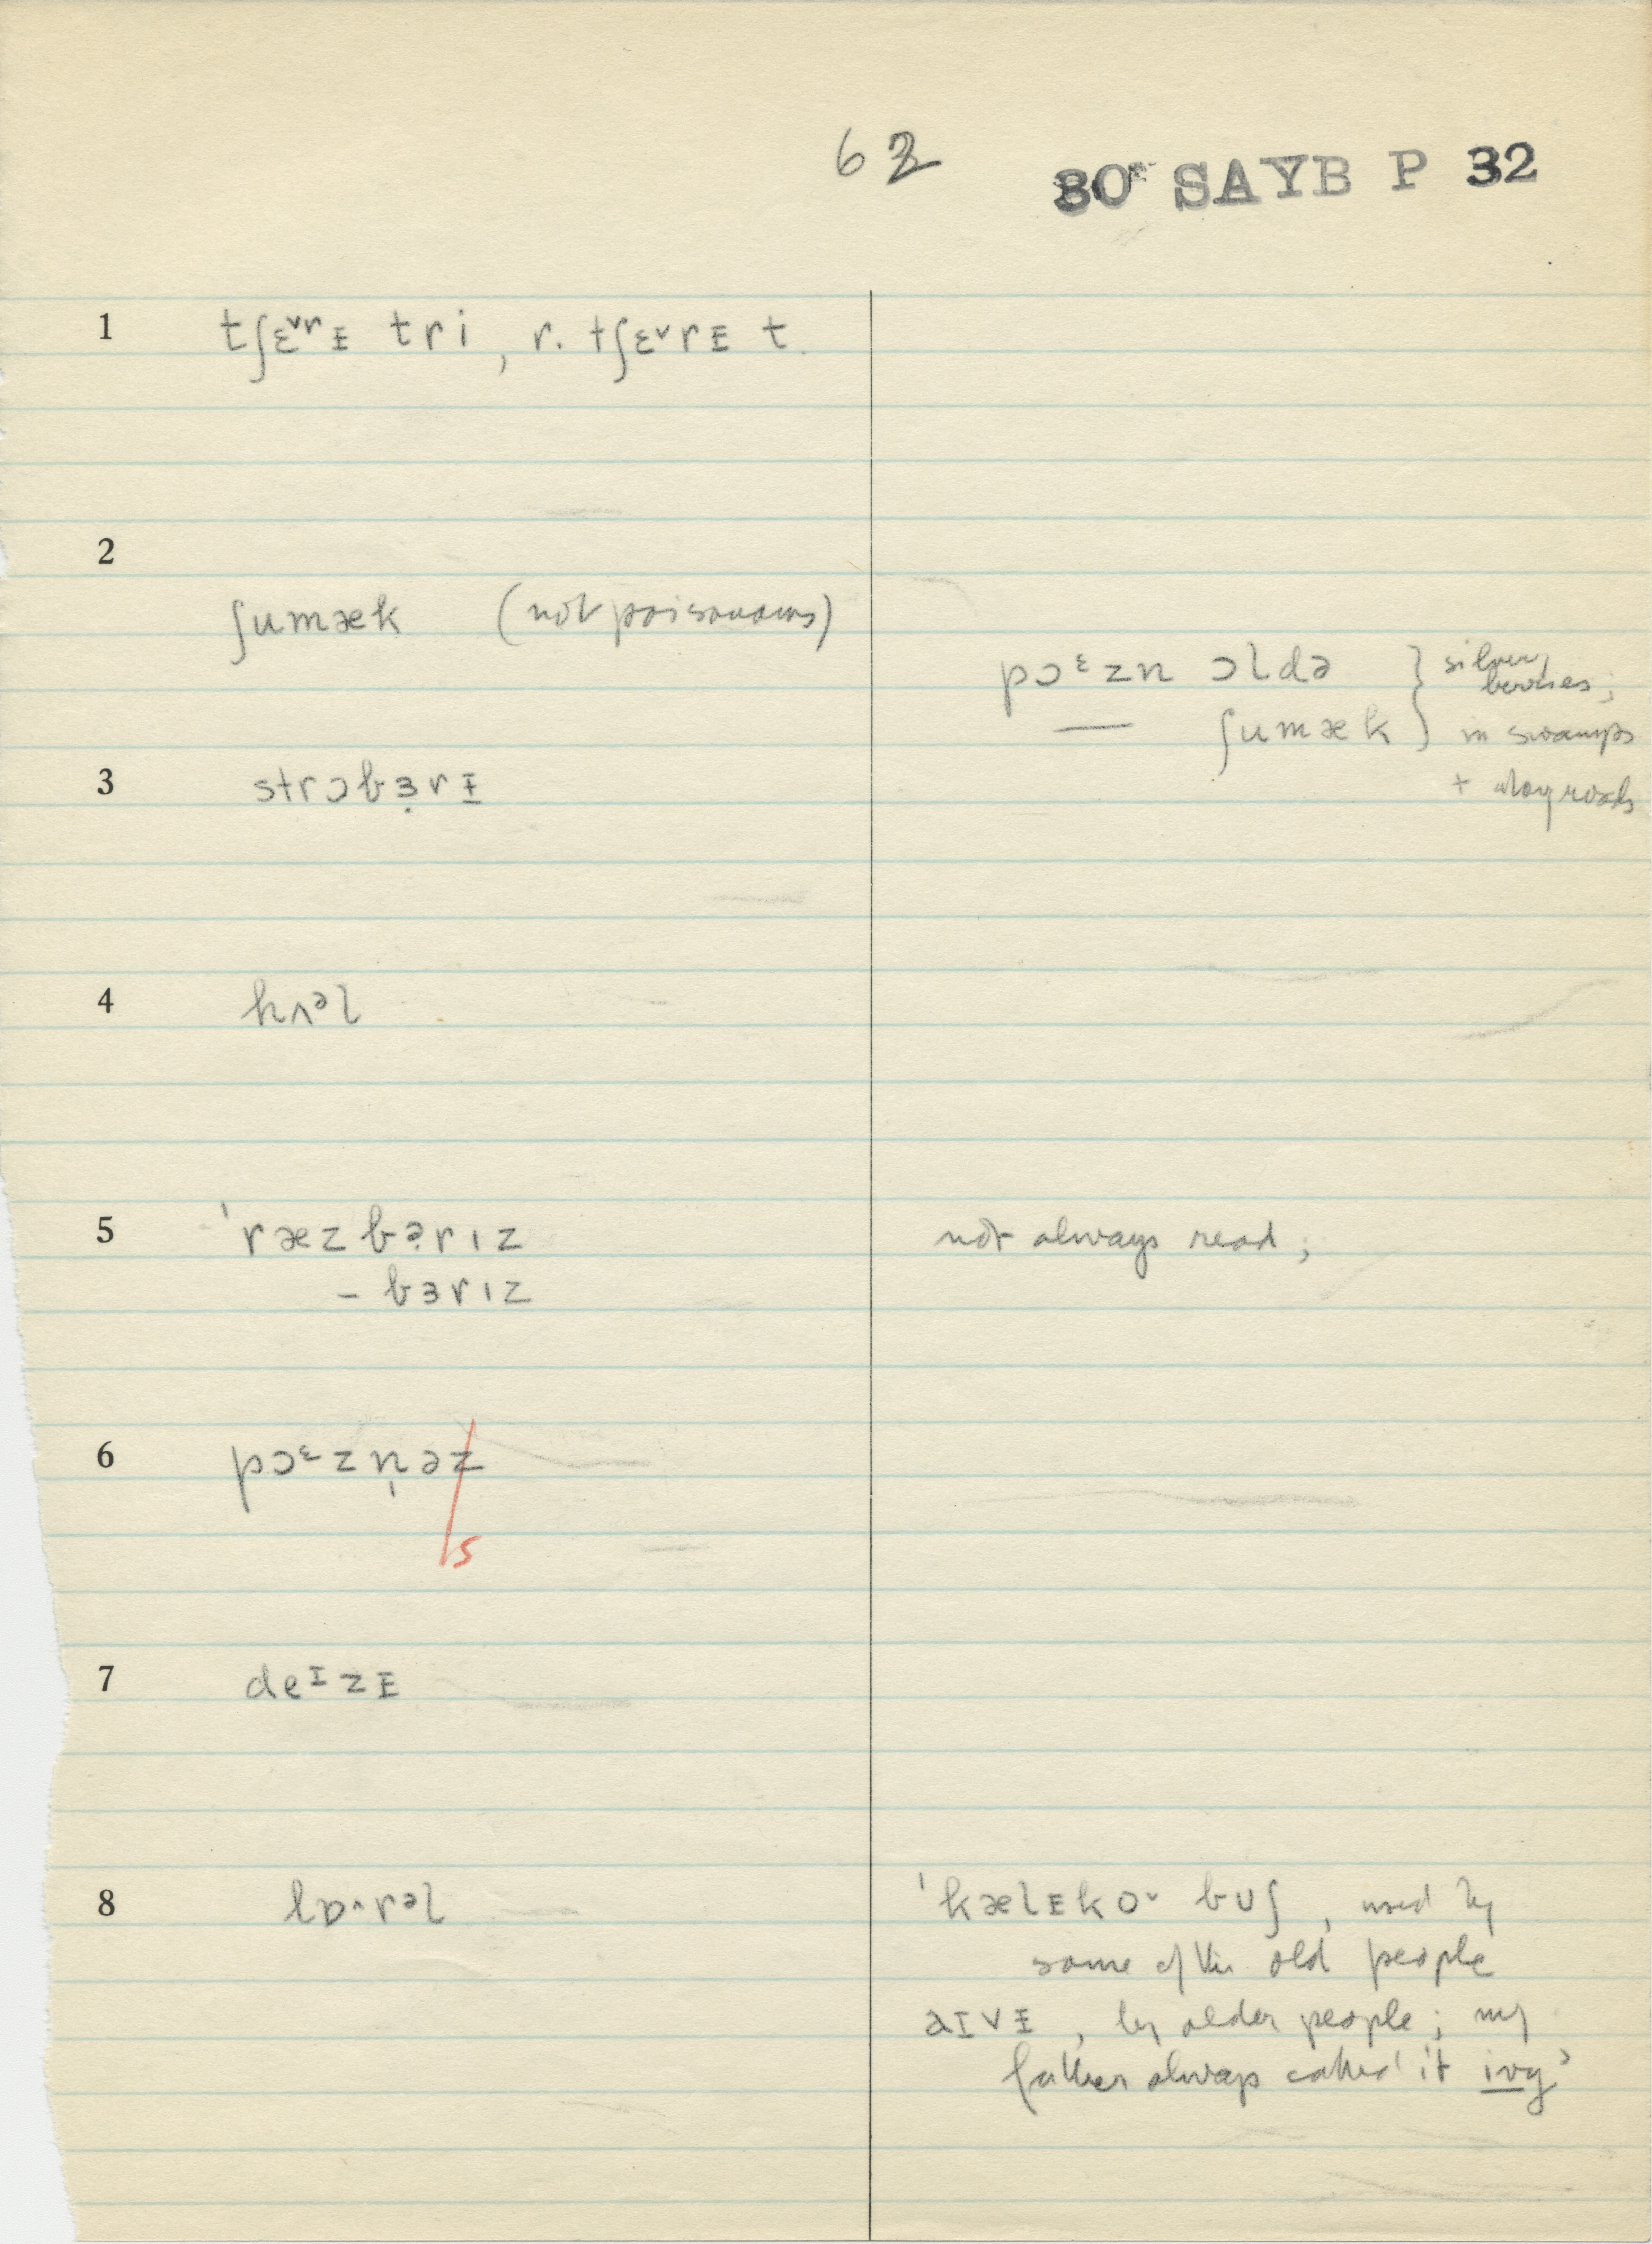 62
80 SAYB P 32
1 tʃɛ˅rᵻ tri, r. tʃɛ˅rᵻ t.
2
ʃumæk (not poisonous)
pɔᵋzn ɔldə } silvery berries;
— ʃumæk } in swamps
+ along roads
3 strɔbɜ̣rᵻ
4 hʌᵊl
5 ˈræzbə̣rɪz not always read;
– bɜrɪz
6 pɔᵋzn̩əz
s
7 deᶦzᵻ
8 lɒ˄rəl ˈkælᵻko˅ bʊʃ, used by
some of the old people
aɪvᵻ, by older people; my
father always called it ivy'